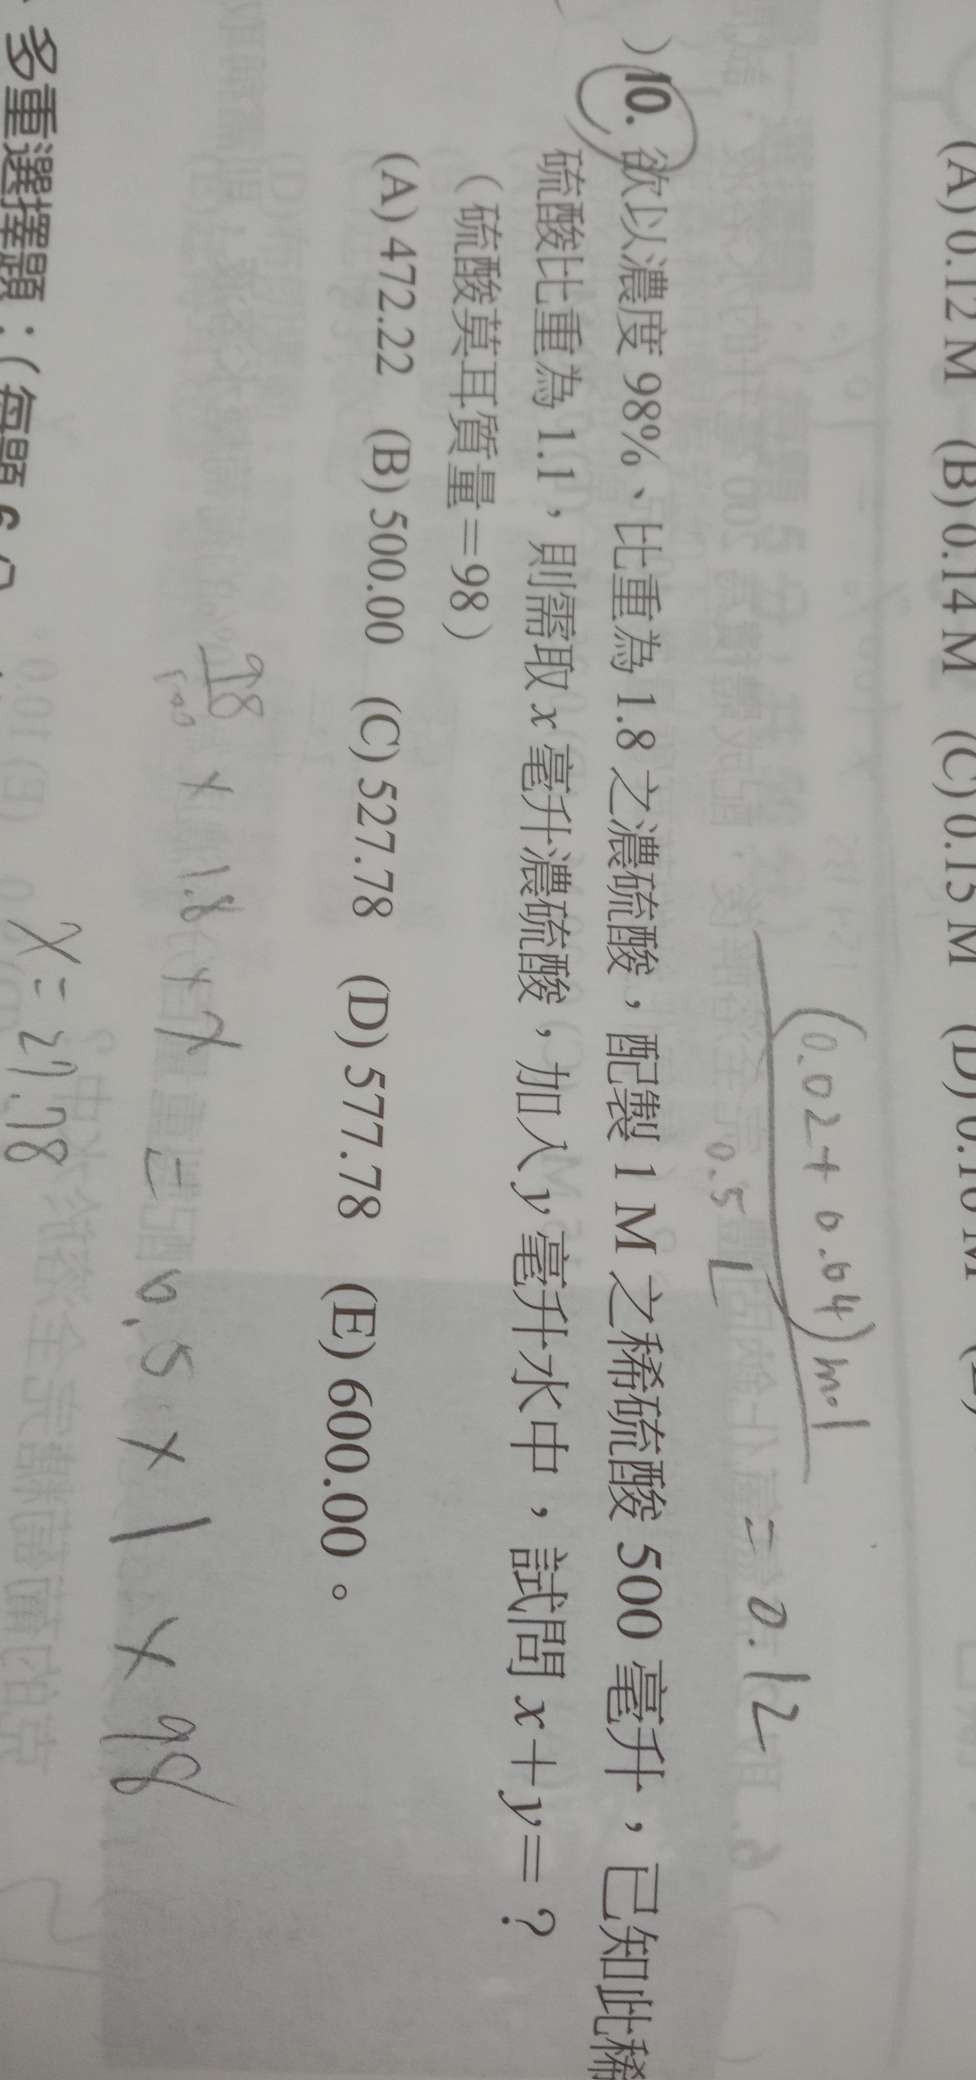 (A) 0.12 M (B) 0.14 M (C) 0.15 M (D) 0.16 M
(0.02+0.04)mol
0.5 L
=0.12
)10. 欲以濃度 98%、比重為 1.8 之濃硫酸,配製 1 M 之稀硫酸 500 毫升,已知此稀
硫酸比重為 1.1,則需取 x 毫升濃硫酸,加入 y 毫升水中,試問 x+y=?
(硫酸莫耳質量=98)
(A) 472.22 (B) 500.00 (C) 527.78 (D) 577.78 (E) 600.00。
98
100
× 1.8 × x = 0.5 × 1 × 98
x = 27.78
多重選擇題:(每題 6